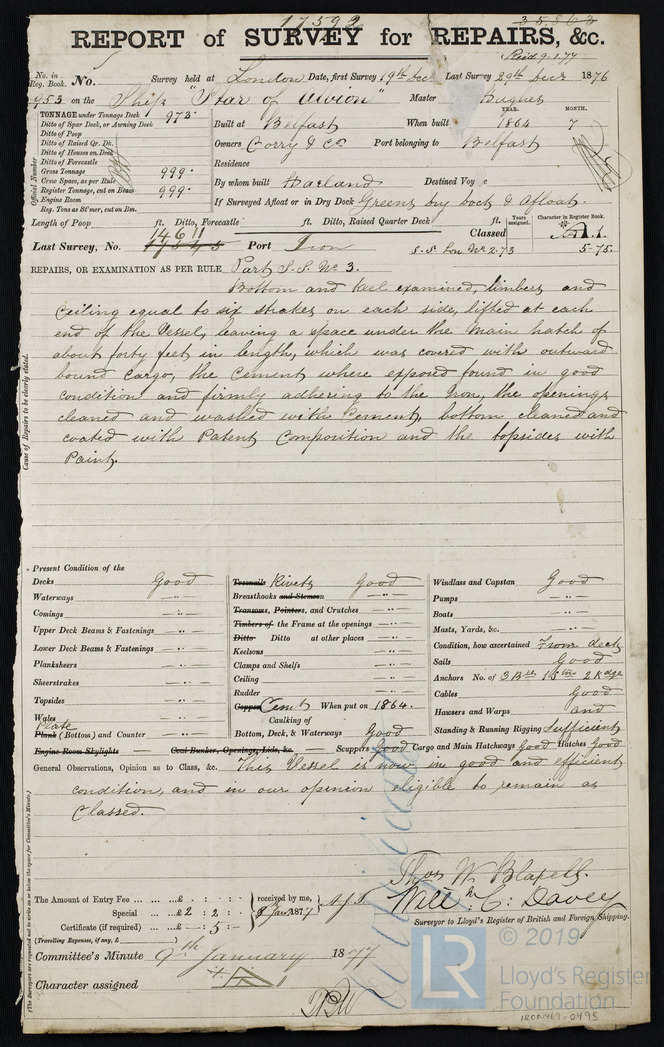 17592
35863
REPORT of SURVEY for REPAIRS, &c.
No. in Reg. Book. No. Survey held at London Date, first Survey 19th Dec Last Survey 29th Decr 1876
953 on the Ship "Star of Albion" Master Hughes
TONNAGE under Tonnage Deck 973
Ditto of Spar Deck, or Awning Deck
Ditto of Poop
Ditto of Raised Qr. Dk.
Ditto of Houses on Deck
Ditto of Forecastle
Gross Tonnage 999
Crew Space, as per Rule
Register Tonnage, cut on Beam 999
Engine Room
Reg. Tons as St'mer, cut on Bm.
Official Number
YEAR. MONTH.
Built at Belfast When built 1864 7
Owners Corry & Co Port belonging to Belfast
Residence
By whom built Harland Destined Voy e
If Surveyed Afloat or in Dry Dock Greens Dry Dock & Afloat.
Length of Poop ft. Ditto, Forecastle ft. Ditto, Raised Quarter Deck ft.
Years assigned. Character in Register Book.
14611
Classed A.1.
Last Survey, No. 17545 Port Iron S.S. Lon No 2.73 5-75.
REPAIRS, OR EXAMINATION AS PER RULE Part S.S. No 3.
Bottom and keel examined, limbers and
ceiling equal to six strakes on each side, lifted at each
end of the Vessel, leaving a space under the main hatch of
about forty feet in length, which was covered with outward
bound cargo, the cement where exposed found in good
condition and firmly adhering to the Iron, the openings
cleaned and washed with cement, bottom cleaned and
coated with Patent Composition and the topsides with
Paint.
Cause of Repairs to be clearly stated.
Present Condition of the
Decks Good
Waterways — " —
Comings — " —
Upper Deck Beams & Fastenings — " —
Lower Deck Beams & Fastenings — " —
Planksheers — " —
Sheerstrakes — " —
Topsides — " —
Wales — " —
Plate
Plank (Bottom) and Counter — " —
Engine Room Skylights
Treenails Rivets Good
Breasthooks and Stemson — " —
Transoms, Pointers, and Crutches — " —
Timbers of the Frame at the openings — " —
Ditto Ditto at other places — " —
Keelsons — " —
Clamps and Shelfs — " —
Ceiling — " —
Rudder — " —
Copper Cemt When put on 1864.
Caulking of
Bottom, Deck, & Waterways Good
Coal Bunker, Openings, Lids, &c. — Scuppers Good Cargo and Main Hatchways Good Hatches Good
Windlass and Capstan Good
Pumps — " —
Boats — " —
Masts, Yards, &c. — " —
Condition, how ascertained From deck
Sails Good
Anchors No. of 3 Brs 1 Stm 2 Kdge
Cables Good
Hawsers and Warps and
Standing & Running Rigging Sufficient
General Observations, Opinion as to Class, &c. This Vessel is now in good and efficient
condition, and in our opinion eligible to remain as
Classed.
Will: C: Davey
Surveyor to Lloyd's Register of British and Foreign Shipping.
The Amount of Entry Fee ... ...£ : :
Special ... ...£ 2 : 2 :
Certificate (if required) ... ...£ — : 5 : —
(Travelling Expenses, if any, £ )
received by me,
8 Jany 1877
Committee's Minute 9th January 1877
Character assigned
© 2019
LR
Lloyd's Register
Foundation
IRON469-0495